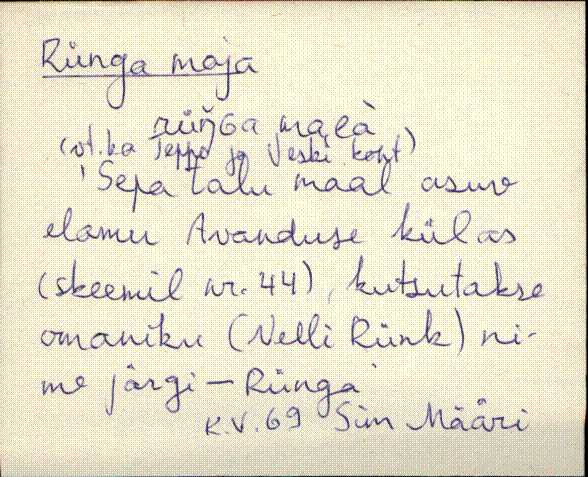 Rünga maja
rüŋ́Ga mai̯à
(vt. ka Teppo ja Veski koht)
'Sepa talu maal asuv
elamu Avanduse külas
(skeemil nr. 44), kutsutakse
omaniku (Nelli Rünk) ni-
me järgi – Rünga'
K.V. 69 Sim Määri